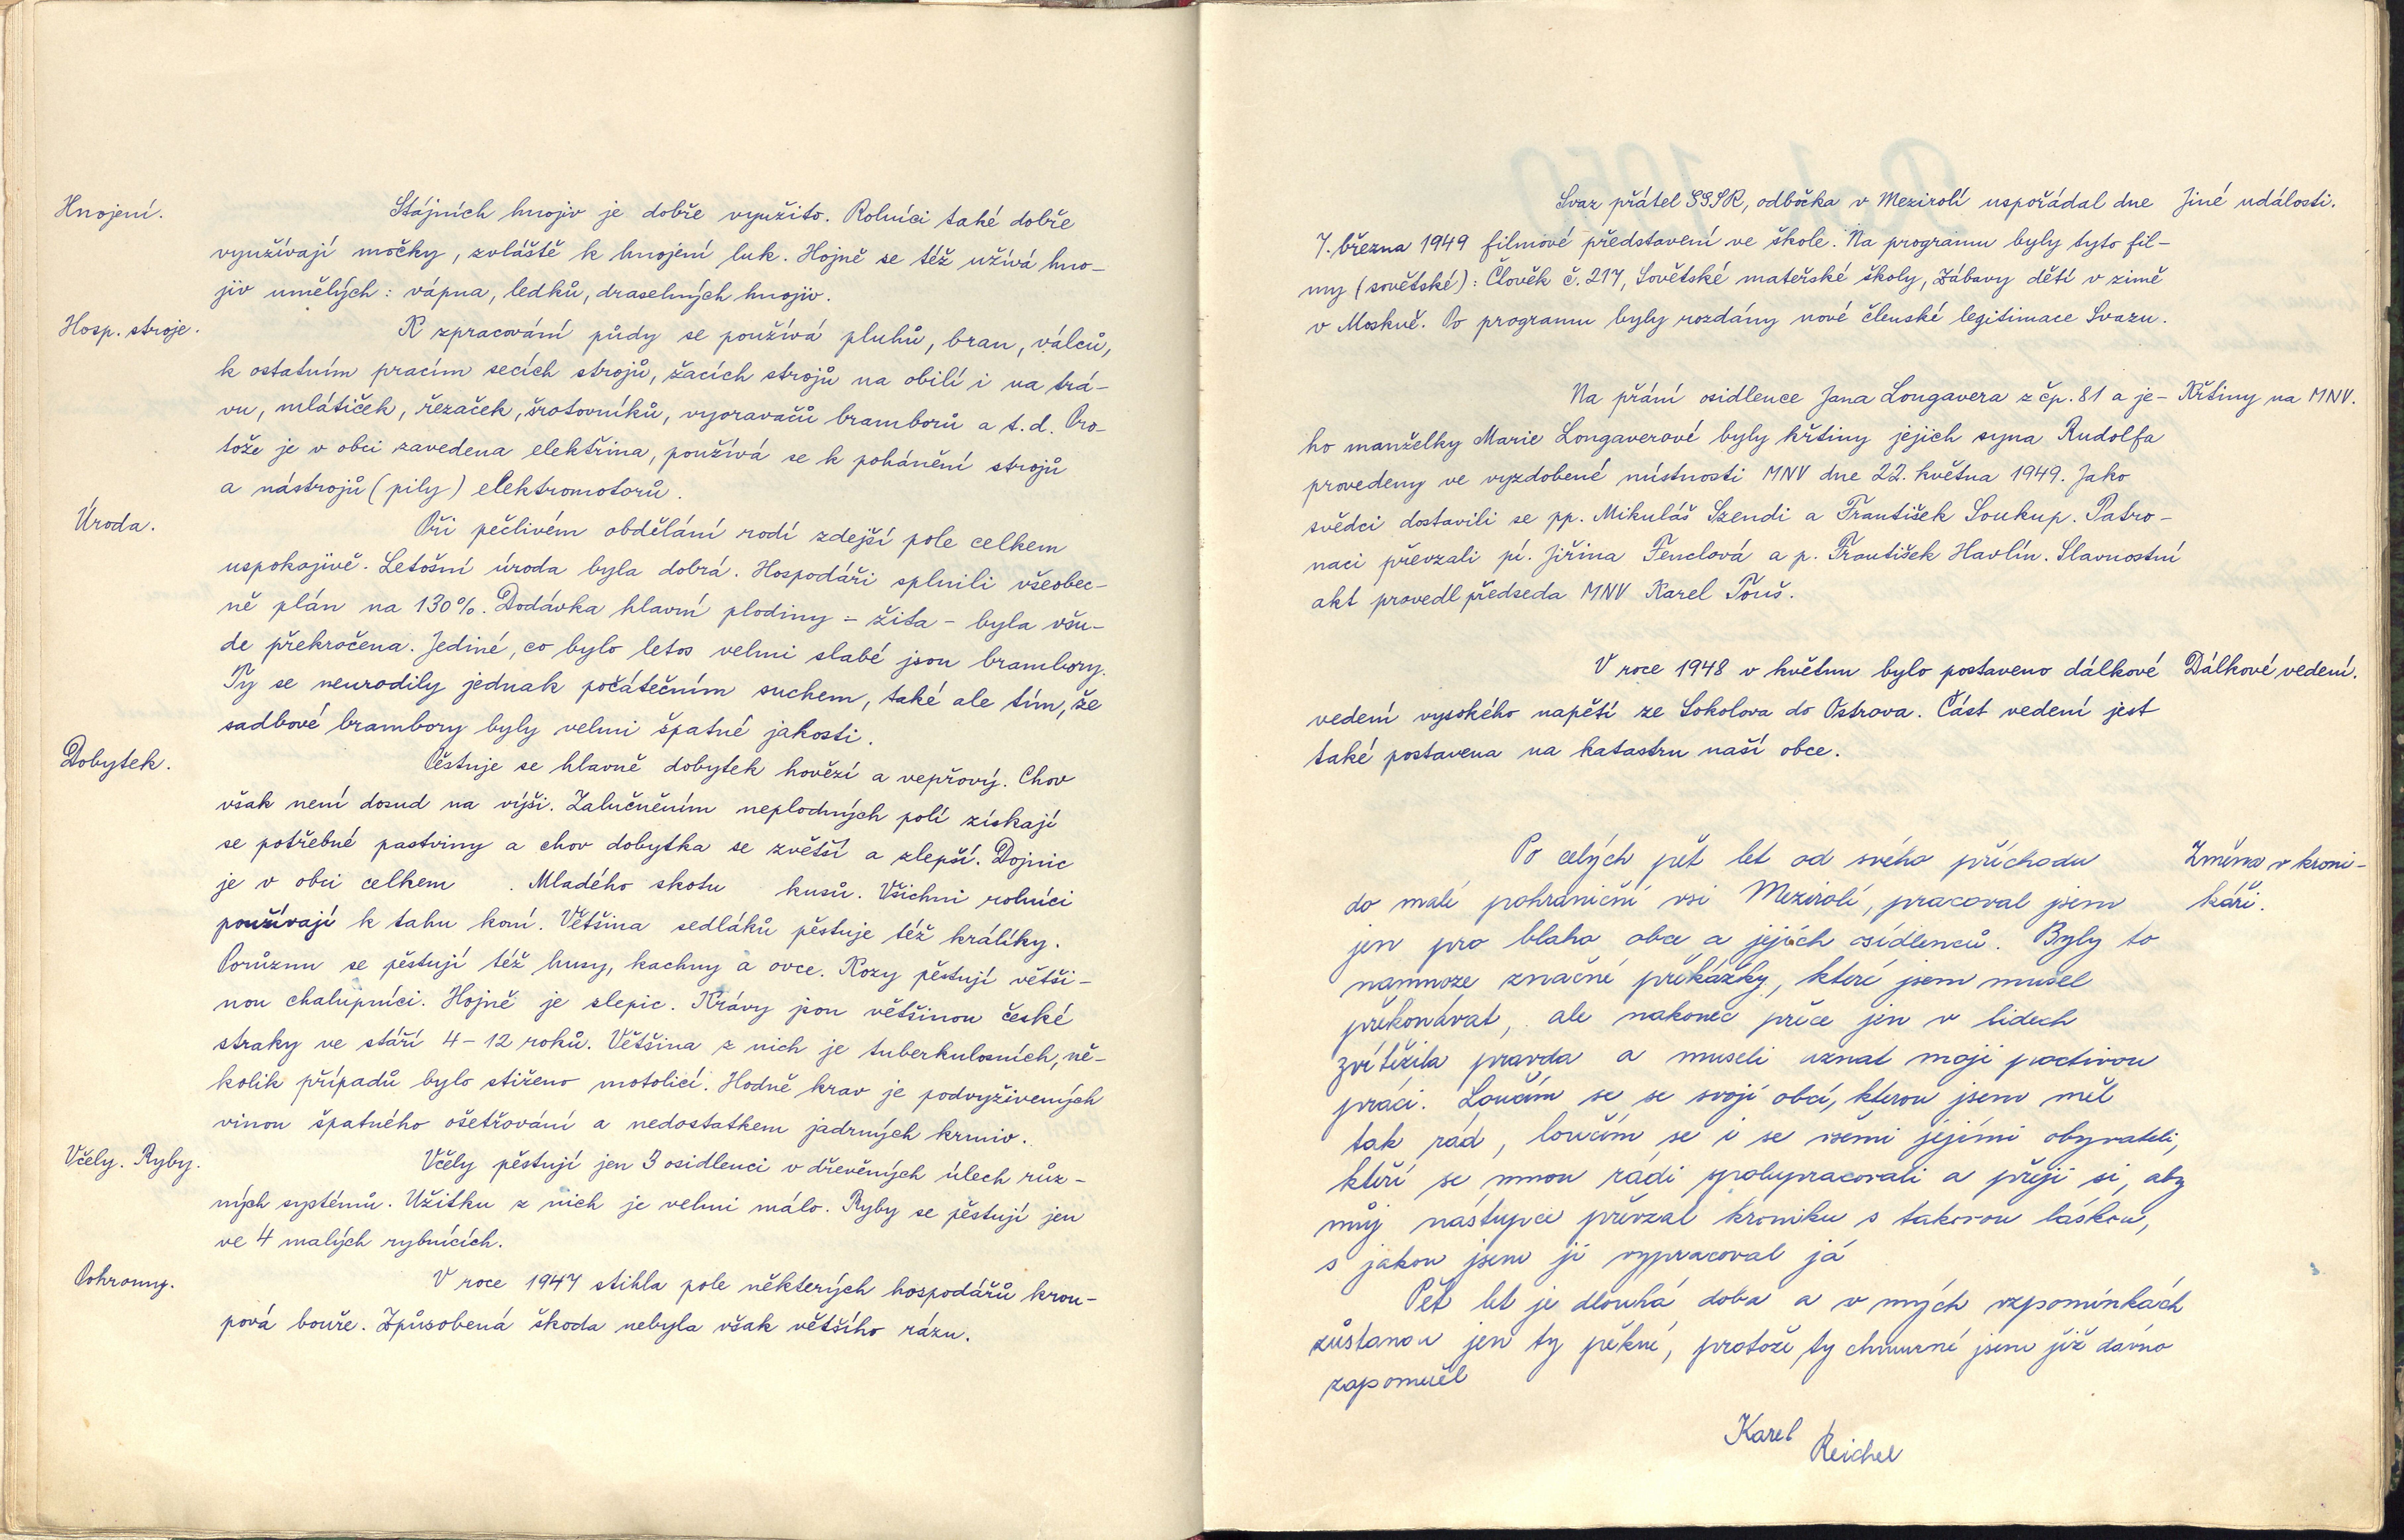 Hnojení.
Stájních hnojiv je dobře využito. Rolníci také dobře
využívají močky, zvláště k hnojení luk. Hojně se též užívá hno-
jiv umělých: vápna, ledků, draselných hnojiv.
Hosp. stroje.
K zpracování půdy se používá pluhů, bran, válců,
k ostatním pracím secích strojů, žacích strojů na obilí i na trá-
vu, mlátiček, řezaček, šrotovníků, vyoravačů bramborů a t. d. Pro-
tože je v obci zavedena elektřina, používá se k pohánění strojů
a nástrojů (pily) elektromotorů.
Úroda.
Při pečlivém obdělání rodí zdejší pole celkem
uspokojivě. Letošní úroda byla dobrá. Hospodáři splnili všeobec-
ně plán na 130%. Dodávka hlavní plodiny - žita - byla všu-
de překročena. Jediné, co bylo letos velmi slabé jsou brambory.
Ty se neurodily jednak počátečním suchem, také ale tím, že
sadbové brambory byly velmi špatné jakosti.
Dobytek.
Pěstuje se hlavně dobytek hovězí a vepřový. Chov
však není dosud na výši. Zalučněním neplodných polí získají
se potřebné pastviny a chov dobytka se zvětší a zlepší. Dojnic
je v obci celkem . Mladého skotu kusů. Všichni rolníci
používají k tahu koní. Většina sedláků pěstuje též králíky.
Porůznu se pěstují též husy, kachny a ovce. Kozy pěstují větši-
nou chalupníci. Hojně je slepic. Krávy jsou většinou české
straky ve stáří 4-12 roků. Většina z nich je tuberkulosních, ně-
kolik případů bylo stiženo motolicí. Hodně krav je podvyživených
vinou špatného ošetřování a nedostatkem jadrných krmiv.
Včely. Ryby.
Včely pěstují jen 3 osidlenci v dřevěných úlech růz-
ných systémů. Užitku z nich je velmi málo. Ryby se pěstují jen
ve 4 malých rybnících.
Pohromy.
V roce 1947 stihla pole některých hospodářů krou-
pová bouře. Způsobená škoda nebyla však většího rázu.
Svaz přátel SSSR, odbočka v Mezirolí uspořádal dne Jiné události.
7. března 1949 filmové představení ve škole. Na programu byly tyto fil-
my (sovětské): Člověk č. 217, Sovětské mateřské školy, Zábavy dětí v zimě
v Moskvě. Po programu byly rozdány nové členské legitimace Svazu.
Na přání osidlence Jana Longavera z čp. 81 a je- Křtiny na MNV.
ho manželky Marie Longaverové byly křtiny jejich syna Rudolfa
provedeny ve vyzdobené místnosti MNV dne 22. května 1949. Jako
svědci dostavili se pp. Mikuláš Szendi a František Soukup. Patro-
naci převzali pí. Jiřina Fenclová a p. František Havlín. Slavnostní
akt provedl předseda MNV Karel Touš.
V roce 1948 v květnu bylo postaveno dálkové Dálkové vedení.
vedení vysokého napětí ze Sokolova do Ostrova. Část vedení jest
také postavena na katastru naší obce.
Po celých pět let od svého příchodu Změna v kroni-
do malé pohraniční vsi Mezirolí, pracoval jsem káři.
jen pro blaho obce a jejích osídlenců. Byly to
namnoze značné překážky, které jsem musel
překonávat, ale nakonec přece jen v lidech
zvítězila pravda a museli uznat moji poctivou
práci. Loučím se se svojí obcí, kterou jsem měl
tak rád, loučím se i se všemi jejími obyvateli,
kteří se mnou rádi spolupracovali a přeji si, aby
můj nástupce převzal kroniku s takovou láskou,
s jakou jsem ji vypracoval já
Pět let je dlouhá doba a v mých vzpomínkách
zůstanou jen ty pěkné, protože ty chmurné jsem již dávno
zapomněl
Karel
Reichel